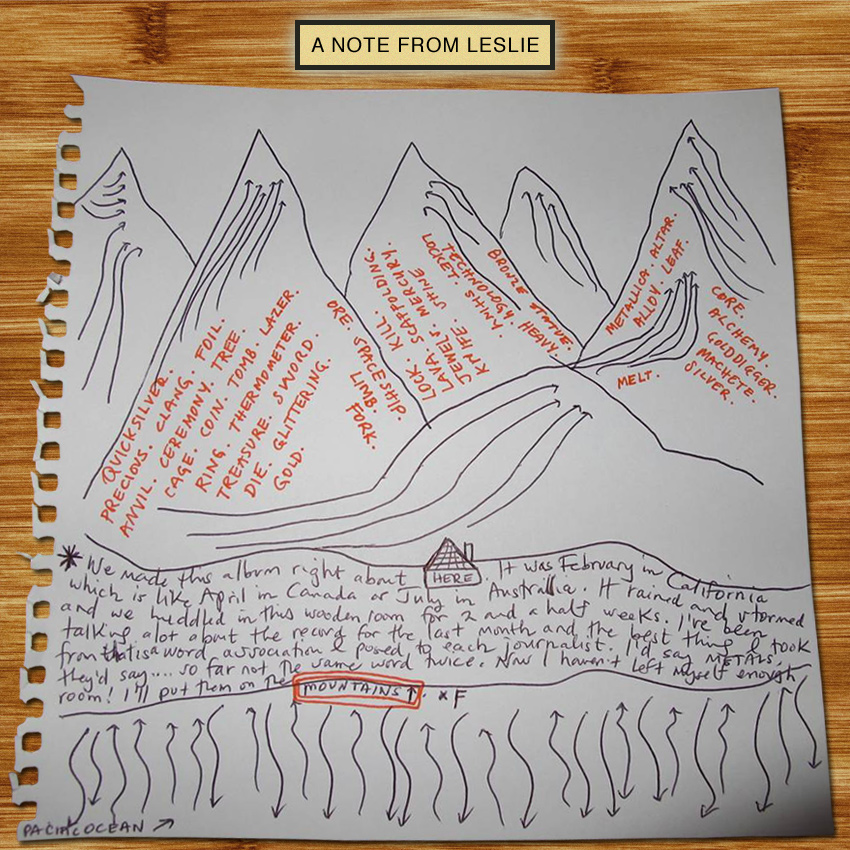 A NOTE FROM LESLIE
QUICKSILVER.
PRECIOUS. CLANG. FOIL.
ANVIL. CEREMONY. TREE.
CAGE. COIN. TOMB. LAZER.
RING. THERMOMETER.
TREASURE. SWORD.
DIE. GLITTERING.
GOLD.
ORE. SPACESHIP.
LIMB.
FORK.
LOCK. KILL. SCAFFOLDING.
LAVA. MERCURY.
JEWEL. SHINE
KNIFE.
LOCKET. SHINY.
TECHNOLOGY. HEAVY
BRONZE STATUE.
METALLICA. ALTAR.
ALLOY. LEAF.
MELT.
CORE.
ALCHEMY.
GOLDDIGGER.
MACHETE.
SILVER.
* We made this album right about HERE. It was February in California
which is like April in Canada or July in Australia. It rained and stormed
and we huddled in this wooden room for 2 and a half weeks. I've been
talking alot about the record for the last month and the best thing I took
from that is a word association I posed to each journalist. I'd say METALS,
they'd say.... so far not the same word twice. Now I haven't left myself enough
room! I'll put them on the MOUNTAINS↑. x F
PACIFIC OCEAN →